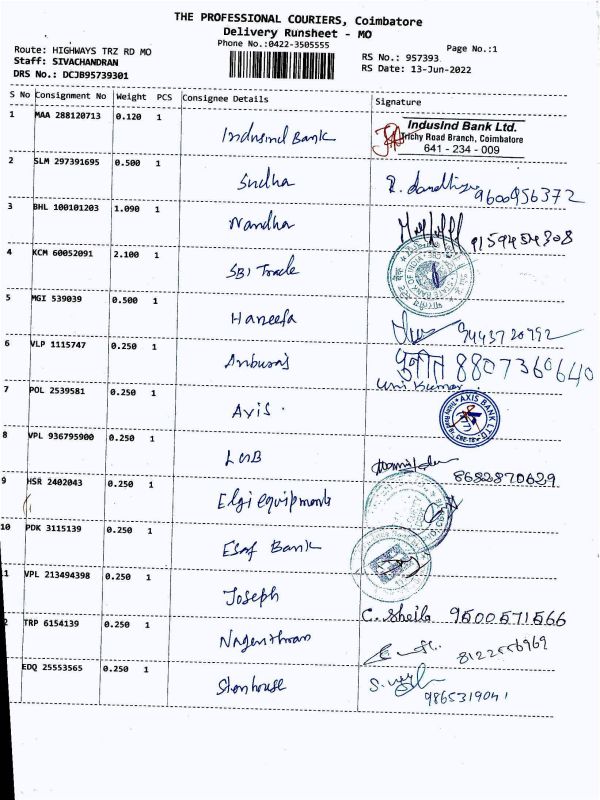 THE PROFESSIONAL COURIERS, Coimbatore
Delivery Runsheet - MO
Phone No.:0422-3505555
Page No.:1
Route: HIGHWAYS TRZ RD MO
Staff: SIVACHANDRAN
DRS No.: DCJB95739301
RS No.: 957393
RS Date: 13-Jun-2022
S No Consignment No Weight PCS Consignee Details Signature
1 MAA 288120713 0.120 1 Indusind Bank
IndusInd Bank Ltd.
Trichy Road Branch, Coimbatore
641 - 234 - 009
2 SLM 297391695 0.500 1 Sudha 9600956372
3 BHL 100101203 1.090 1 Nandha 9159454808
4 KCM 60052091 2.100 1 SBI Trade
5 MGI 539039 0.500 1 Haneefa 9443720792
6 VLP 1115747 0.250 1 Anburaj 8807360640
7 POL 2539581 0.250 1 Axis. AXIS BANK LTD
8 VPL 936795900 0.250 1 LUB 8682870629
9 HSR 2402043 0.250 1 Elgi equipments
10 PDK 3115139 0.250 1 Esaf Bank
1 VPL 213494398 0.250 1 Joseph C. Sheila 9500571566
2 TRP 6154139 0.250 1 8122556969
EDQ 25553565 0.250 1 Stenhouse 9865319041